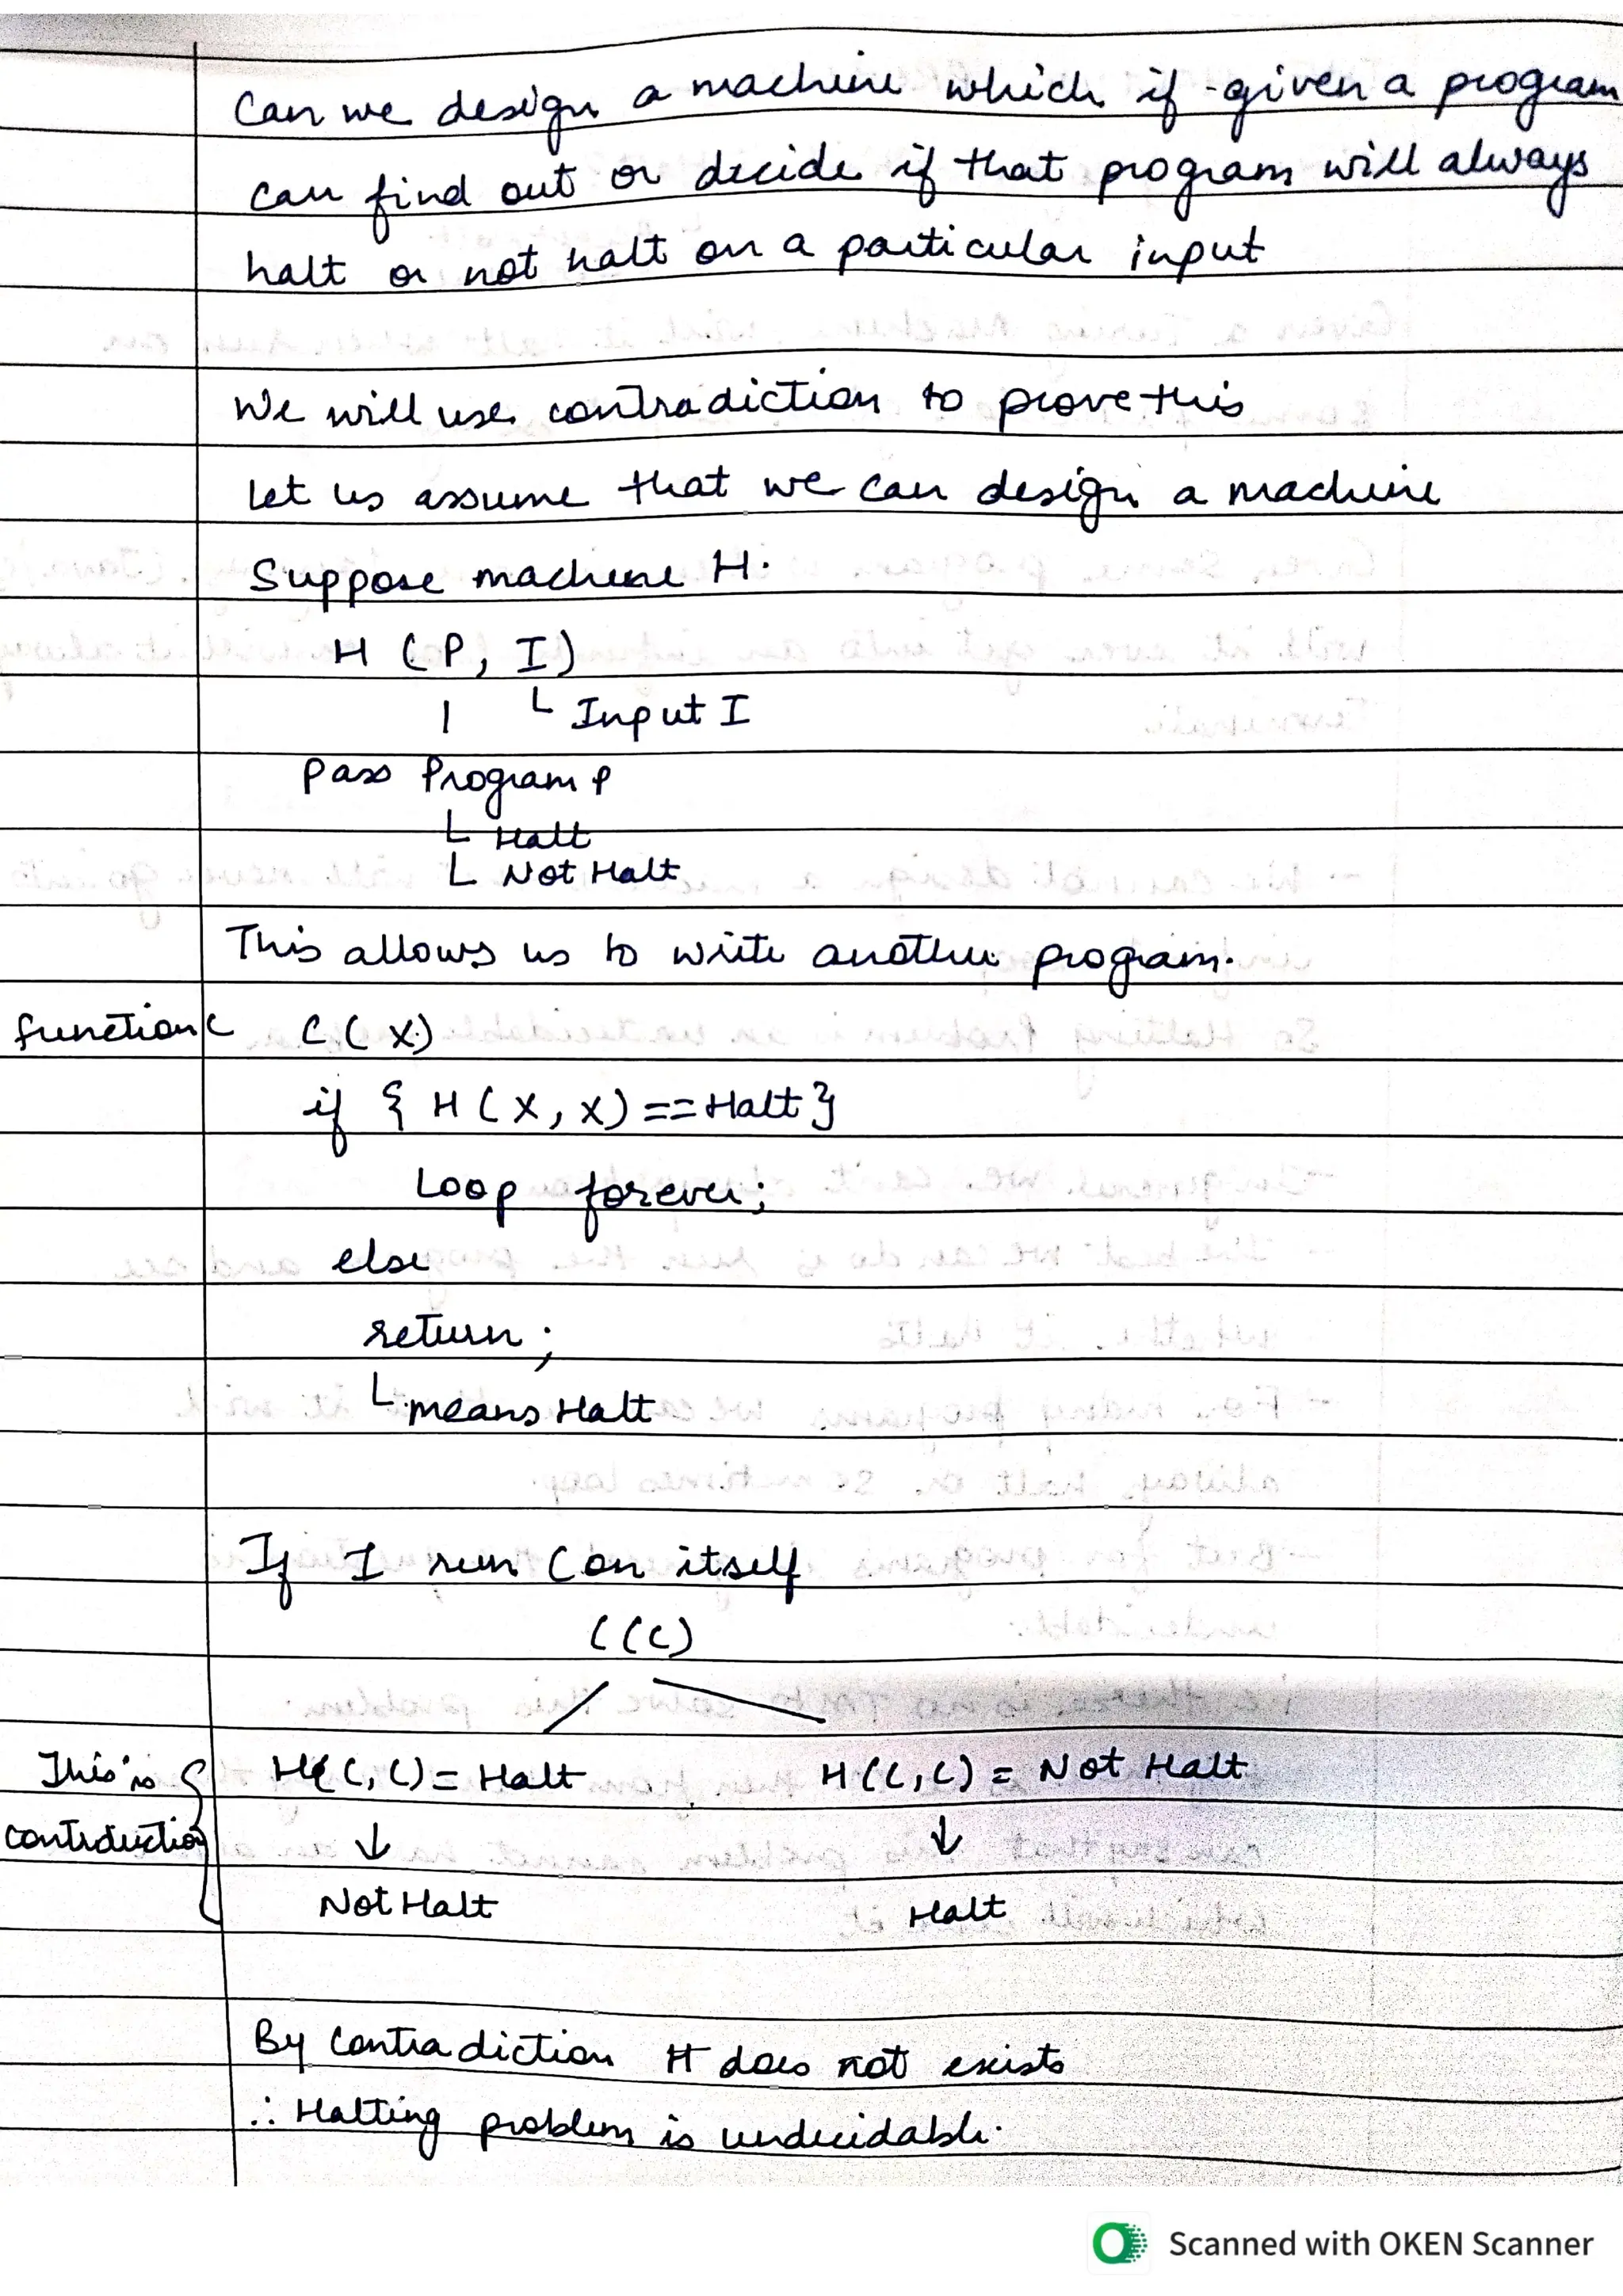 Can we design a machine which if given a program
can find out or decide if that program will always
halt or not halt on a particular input
We will use contradiction to prove this
let us assume that we can design a machine
Suppose machine H.
H (P, I)
Input I
Pass Program P
Halt
Not Halt
This allows us to write another program.
function C C(X)
if { H(X,X) == Halt }
Loop forever;
else
return;
means Halt
If I run C on itself
C(C)
This is H(C,C) = Halt H(C,C) = Not Halt
contriduction ↓ ↓
Not Halt Halt
By Contradiction H does not exists
∴ Halting problem is undecidable.
Scanned with OKEN Scanner